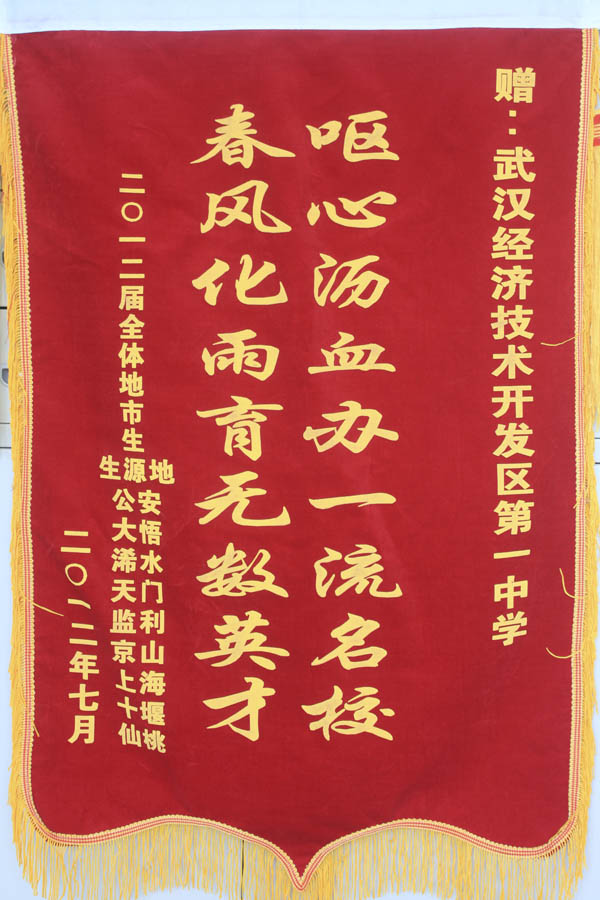 赠：武汉经济技术开发区第一中学
呕心沥血办一流名校
春风化雨育无数英才
二〇一二届全体地市生
生源地
公安
大悟
浠水
天门
监利
京山
上海
十堰
仙桃
二〇一二年七月